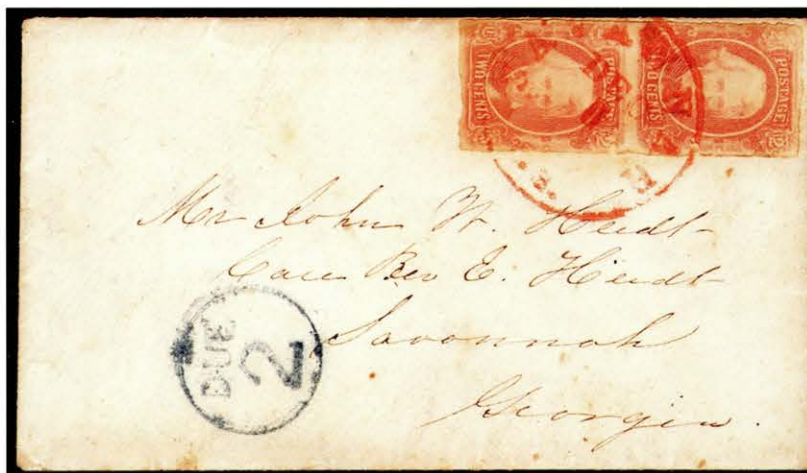 TWO CENTS POSTAGE
TWO CENTS POSTAGE
Mr John W. Heidt
Care Rev E. Heidt
Savannah
Georgia.
DUE
2